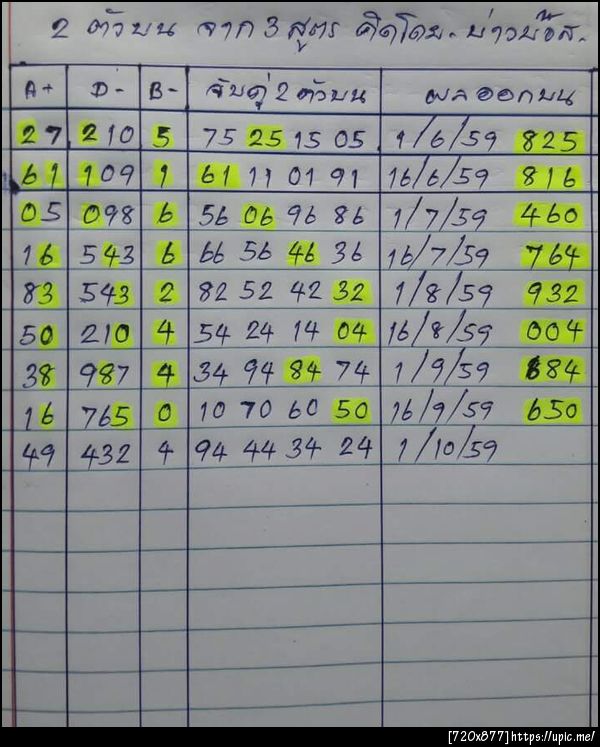 2 ตัวบน จาก 3 สูตร คิดโดย. บ่าวบ๊อส.
A+ D- B- จับคู่ 2 ตัวบน ผลออกบน
27 210 5 75 25 15 05 1/6/59 825
61 109 1 61 11 01 91 16/6/59 816
05 098 6 56 06 96 86 1/7/59 460
16 543 6 66 56 46 36 16/7/59 764
83 543 2 82 52 42 32 1/8/59 932
50 210 4 54 24 14 04 16/8/59 004
38 987 4 34 94 84 74 1/9/59 684
16 765 0 10 70 60 50 16/9/59 650
49 432 4 94 44 34 24 1/10/59
[720x877]https://upic.me/